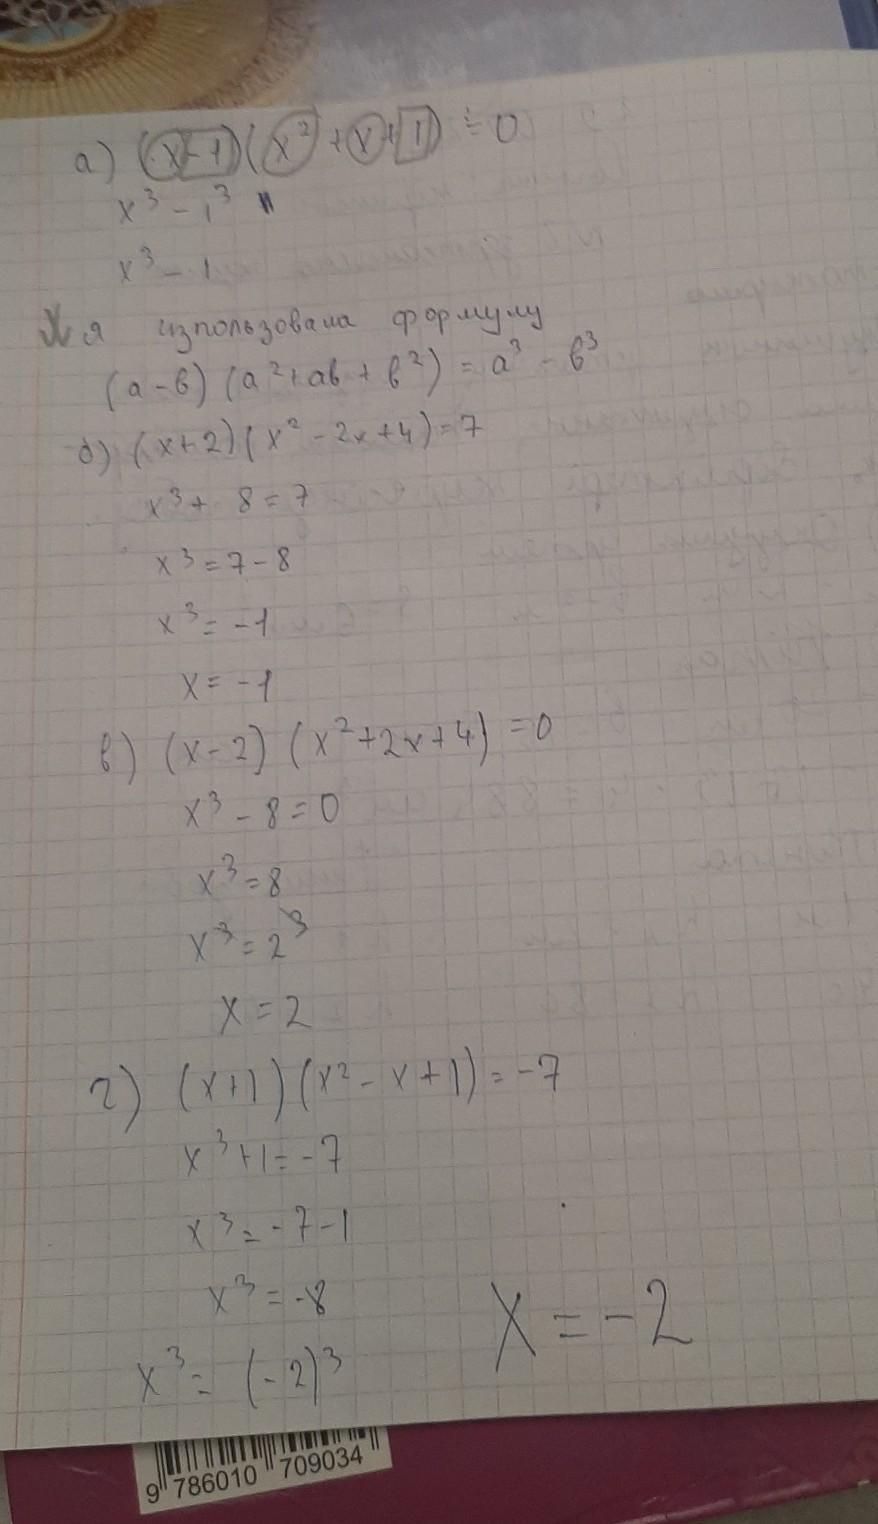 а) (x-1)(x²+x+1)=0
x³-1³
x³-1
я изпользовала формулу
(a-b)(a²+ab+b²)=a³-b³
б) (x+2)(x²-2x+4)=7
x³+8=7
x³=7-8
x³=-1
x=-1
в) (x-2)(x²+2x+4)=0
x³-8=0
x³=8
x³=2³
x=2
г) (x+1)(x²-x+1)=-7
x³+1=-7
x³=-7-1
x³=-8
x³=(-2)³
x=-2
9 786010 709034